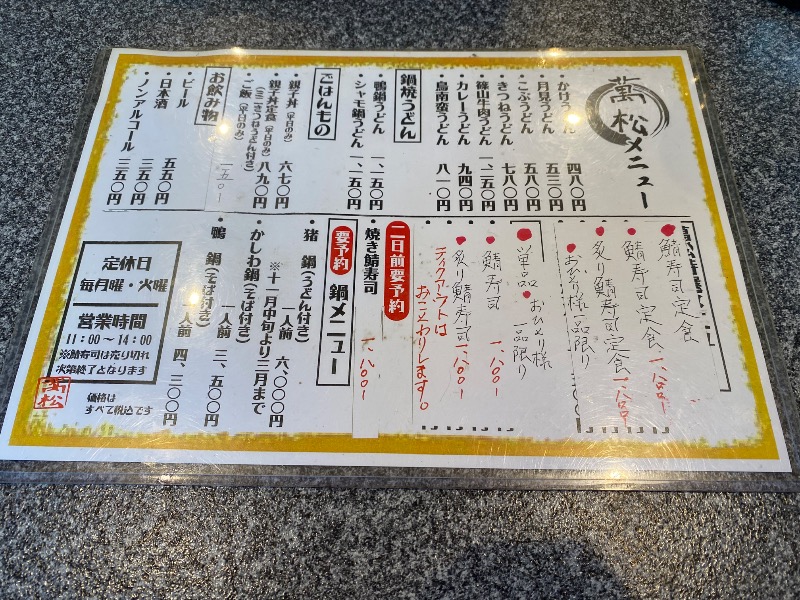 萬松メニュー
・かけうどん 四八〇円
・月見うどん 五三〇円
・こぶうどん 五八〇円
・きつねうどん 七八〇円
・篠山牛肉うどん 一、二五〇円
・カレーうどん 九四〇円
・鳥南蛮うどん 八一〇円
鍋焼うどん
・鴨鍋うどん 一、一五〇円
・シャモ鍋うどん 一、一五〇円
ごはんもの
・親子丼（平日のみ） 六七〇円
・親子丼定食（平日のみ） 八九〇円
（ミニきつねうどん付き）
・ご飯（平日のみ） 一五〇-
お飲み物
・ビール 五五〇円
・日本酒 三五〇円
・ノンアルコール 三五〇円
鯖寿司定食
鯖寿司定食 一、八〇〇-
炙り鯖寿司定食 一、八〇〇-
お一人様一品限り
単品・お一人様一品限り
鯖寿司 一、八〇〇-
炙り鯖寿司 一、八〇〇-
テイクアウトはお断りします。
二日前要予約
焼き鯖寿司 一、八〇〇-
要予約 鍋メニュー
・猪鍋（うどん付き） 一人前 六、〇〇〇円
※十一月中旬より三月まで
・かしわ鍋（そば付き） 一人前 三、五〇〇円
・鴨鍋（そば付き） 一人前 四、三〇〇円
定休日
毎月曜・火曜
営業時間
11:00～14:00
※鯖寿司は売り切れ
次第終了となります
価格は
すべて税込です
萬松